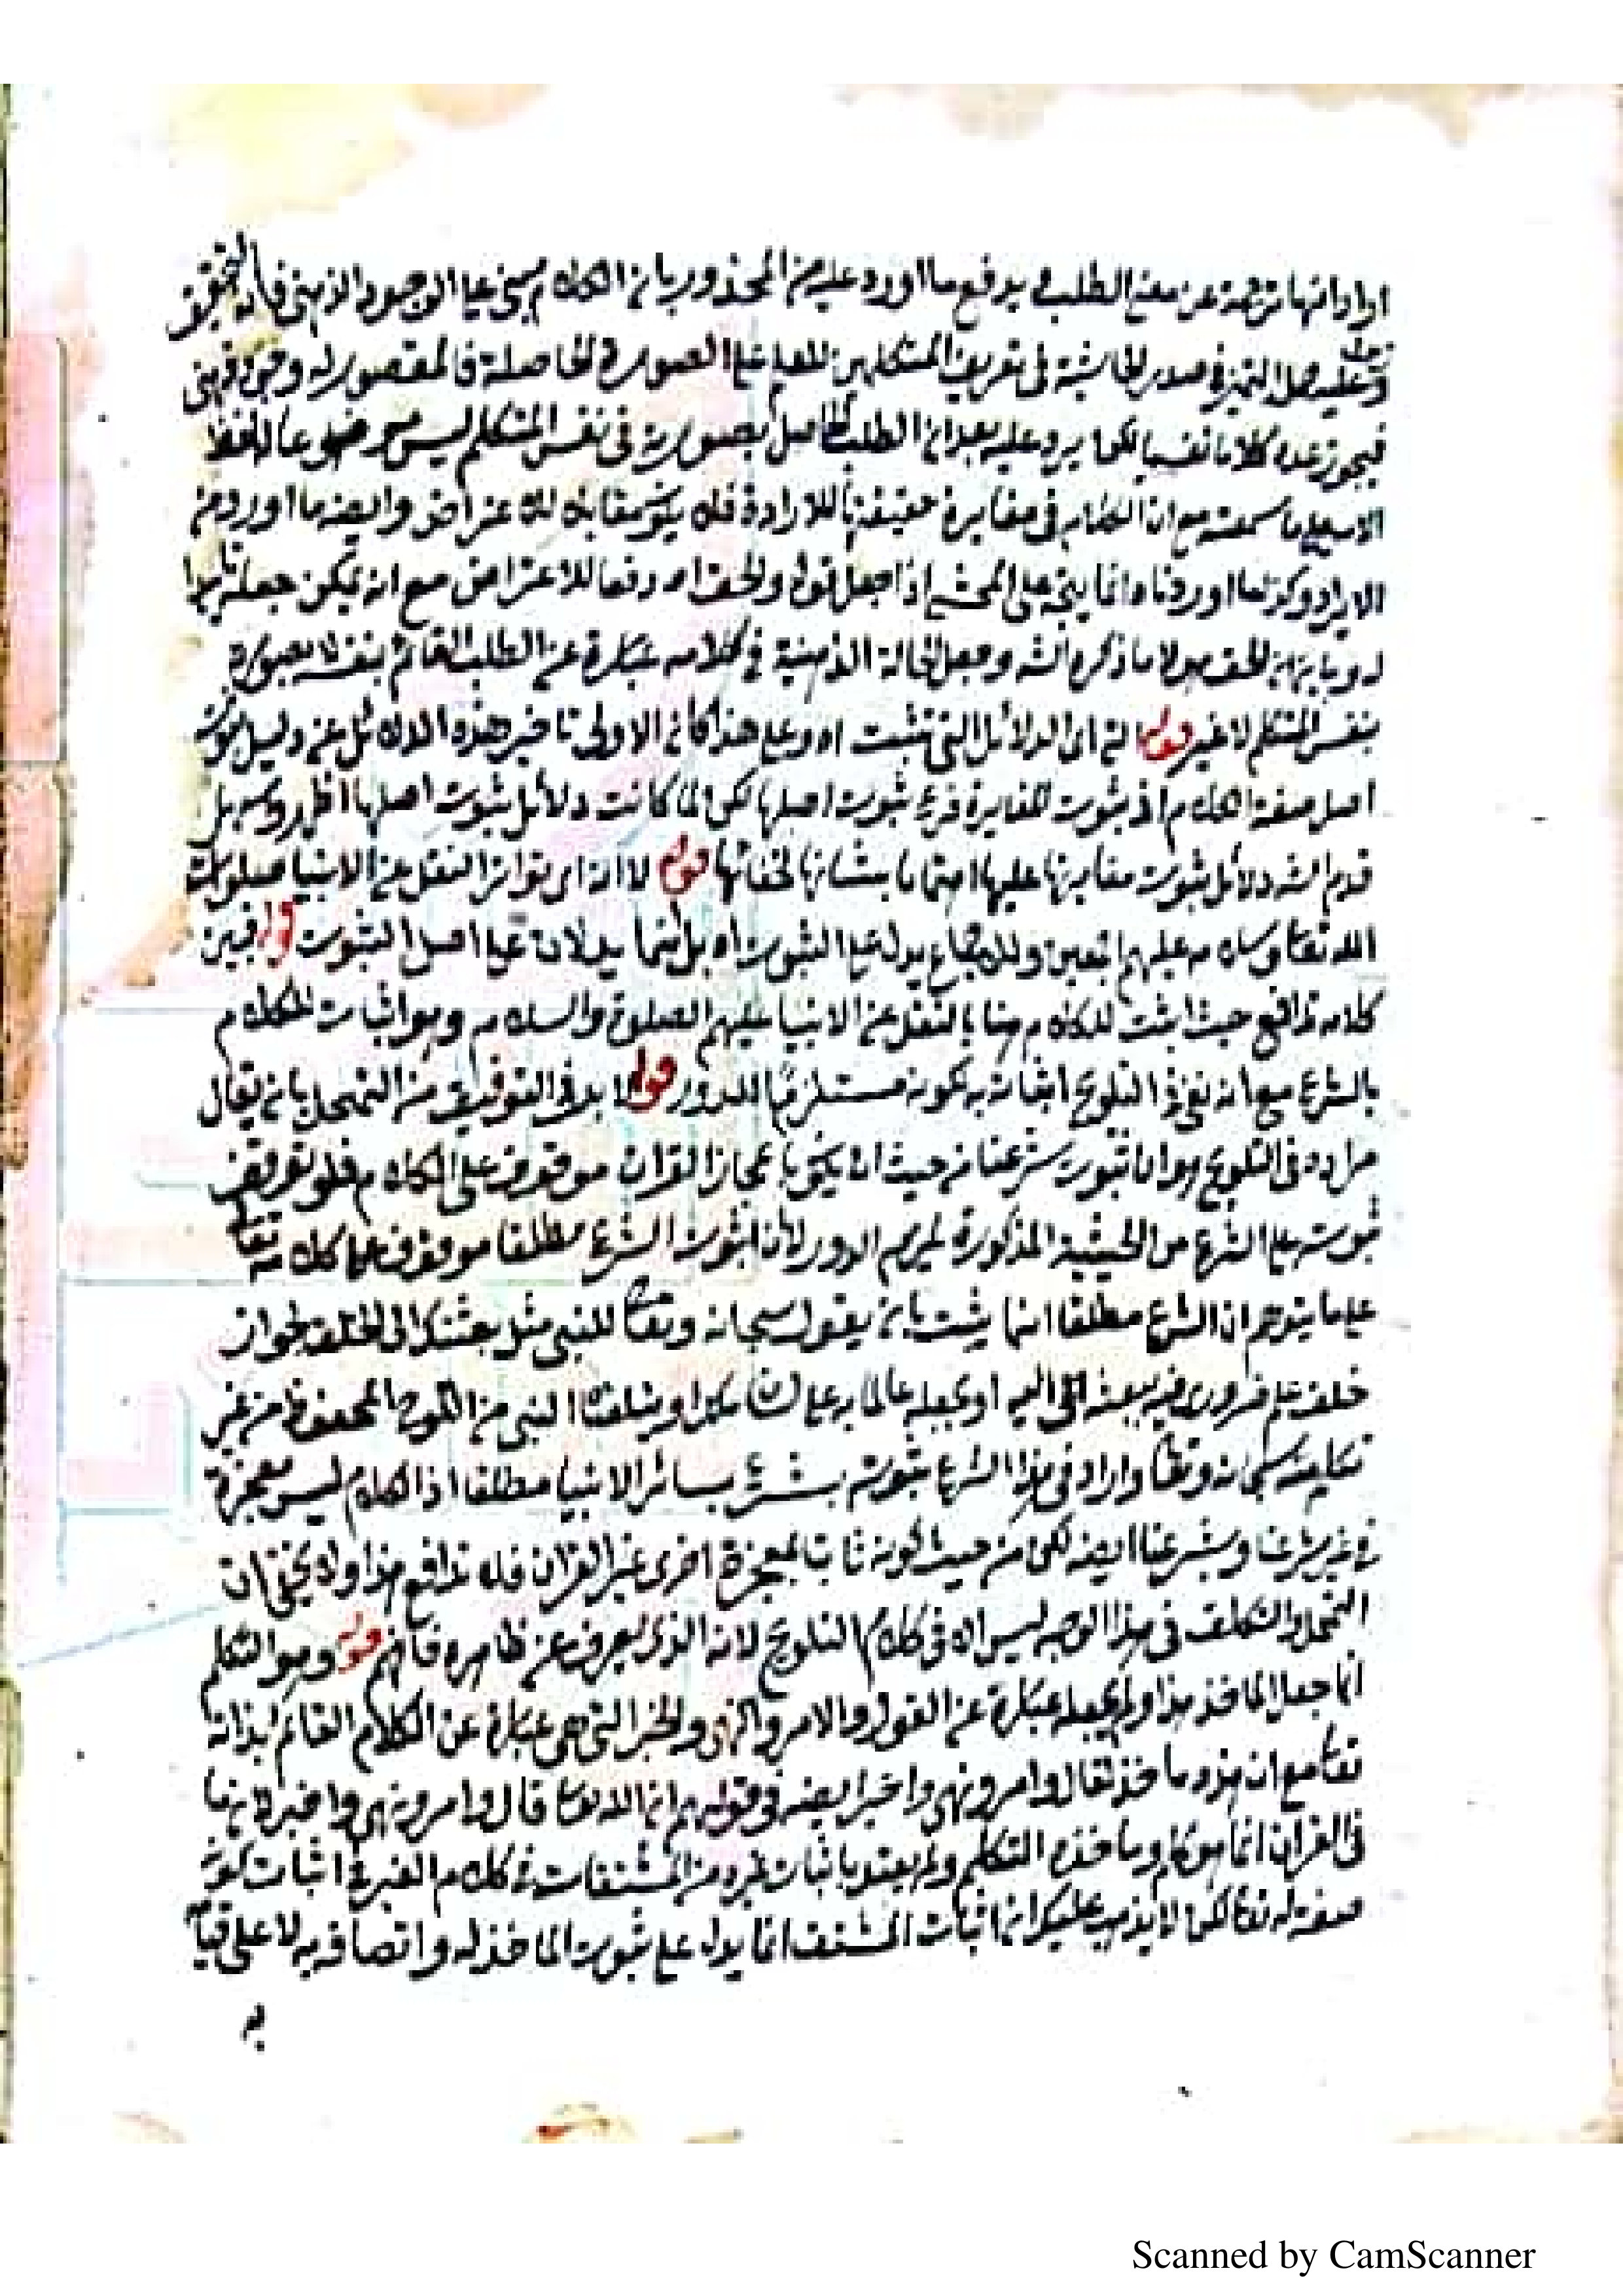 اراد انها ترجمة عن معنى الطلب في يدفع ما اورد عليه من المحذور بان الكلام مبنى على الوجود الذهنى فانه المحقق
وعليه حمل التميز في صدر الحاشية فى تعريف المتكلمين للعلم على الصورة الحاصلة فالمقصور له وجود ذهنى
فيجوز عده كلاما نفسيا لكن يرد عليه بعد ان الطلب الحاصل بصورته فى نفس المتكلم ليس موضوعا للفظ
الامر على ما سمعته مع ان الكلام فى مغايرة حقيقتها للارادة فلا يكون مقابلا للاعتراض وايضه ما اورد من
الايراد وكذا ما اوردناه انما يتجه على المحشى اذا جعل قوله والحق اه دفعا للاعتراض مع انه يمكن جعله
له وبان الحق هو لا ما ذكره الشه وجعل الحالة الذهنية فى كلامه عبارة عن الطلب القائم بنفسه لا بصورة
بنفس المتكلم لا غير قوله ثم ان الدلائل التى تثبت اه وعلى هذا كان الاولى تاخير هذه الدلائل عن دليل ثبوت
اصل صفة الكلام اذ ثبوت المغايرة فرع ثبوت اصلها لكن لما كانت دلائل ثبوت اصلها اظهر واسهل
قدم الشه دلائل ثبوت مغايرتها عليها اهتماما بشانها لخفائها قوله لا انه اى تواتر النقل عن الانبيا صلوات
الله تعا وسلامه عليهم اجمعين والاجماع يدل على الثبوت اه بل انما يدلان على اصل الثبوت قوله فبين
كلامه تدافع حيث اثبت الكلام هنا بالنقل عن الانبيا عليهم الصلوة والسلام وهو اثبات للكلام
بالشرع مع انه نفى فى التلويح اثباته به لكونه مستلزما للدور قوله لا بد فى التوفيق من التمحل بان يقال
مراده فى التلويح هو ان ثبوت شرعنا من حيث انه يكون باعجاز القران موقوف على الكلام فلو توقف
ثبوته على الشرع من الحيثية المذكورة لزم الدور لا ان ثبوت الشرع مطلقا موقوف على كلامه تعا
على ما يتوهم ان الشرع مطلقا انما يثبت بان يقول سبحانه وتعا للنبى مثل بعثتك الى الخلق لجواز
خلقه علم ضرورى فيه ببعثه الى اليه او يجعله عالما به على لسان ملك او يتلقى النبى من اللوح المحفوظ من غير
تكليمه سبحانه وتعا واراد فى هذا الشرع ثبوته بشرع سائر الانبيا مطلقا اذ الكلام ليس معجزة
فى غير شرعنا وبشرعنا ايضه لكن من حيث كونه ثابتا بمعجزة اخرى غير القران فلا تدافع هذا ولا يخفى ان
التمحل والتكلف فى هذا الوجه ليس الا فى كلام التلويح لانه الذى يصرف عن ظاهره فافهم قوله وهو التكلم
انما جعل الماخذ هذا ولم يجعله عبارة عن القول والامر والنهى والخبر التى هى عبارة عن الكلام القائم بذاته
تعا مع ان هذه ماخذ لقال وامر ونهى واخبر ايضه فى قولهم ان الله تعا قال وامر ونهى واخبر لان ما
فى القران انما هو كلم وماخذه التكلم ولم يعتد باثبات غيره من المشتقات فى كلام الغير فى اثبات كونه
صفة له تعا لكن لا يذهب عليك ان اثبات المشتق انما يدل على ثبوت الماخذ له واتصافه به لا على قيامه
به
Scanned by CamScanner